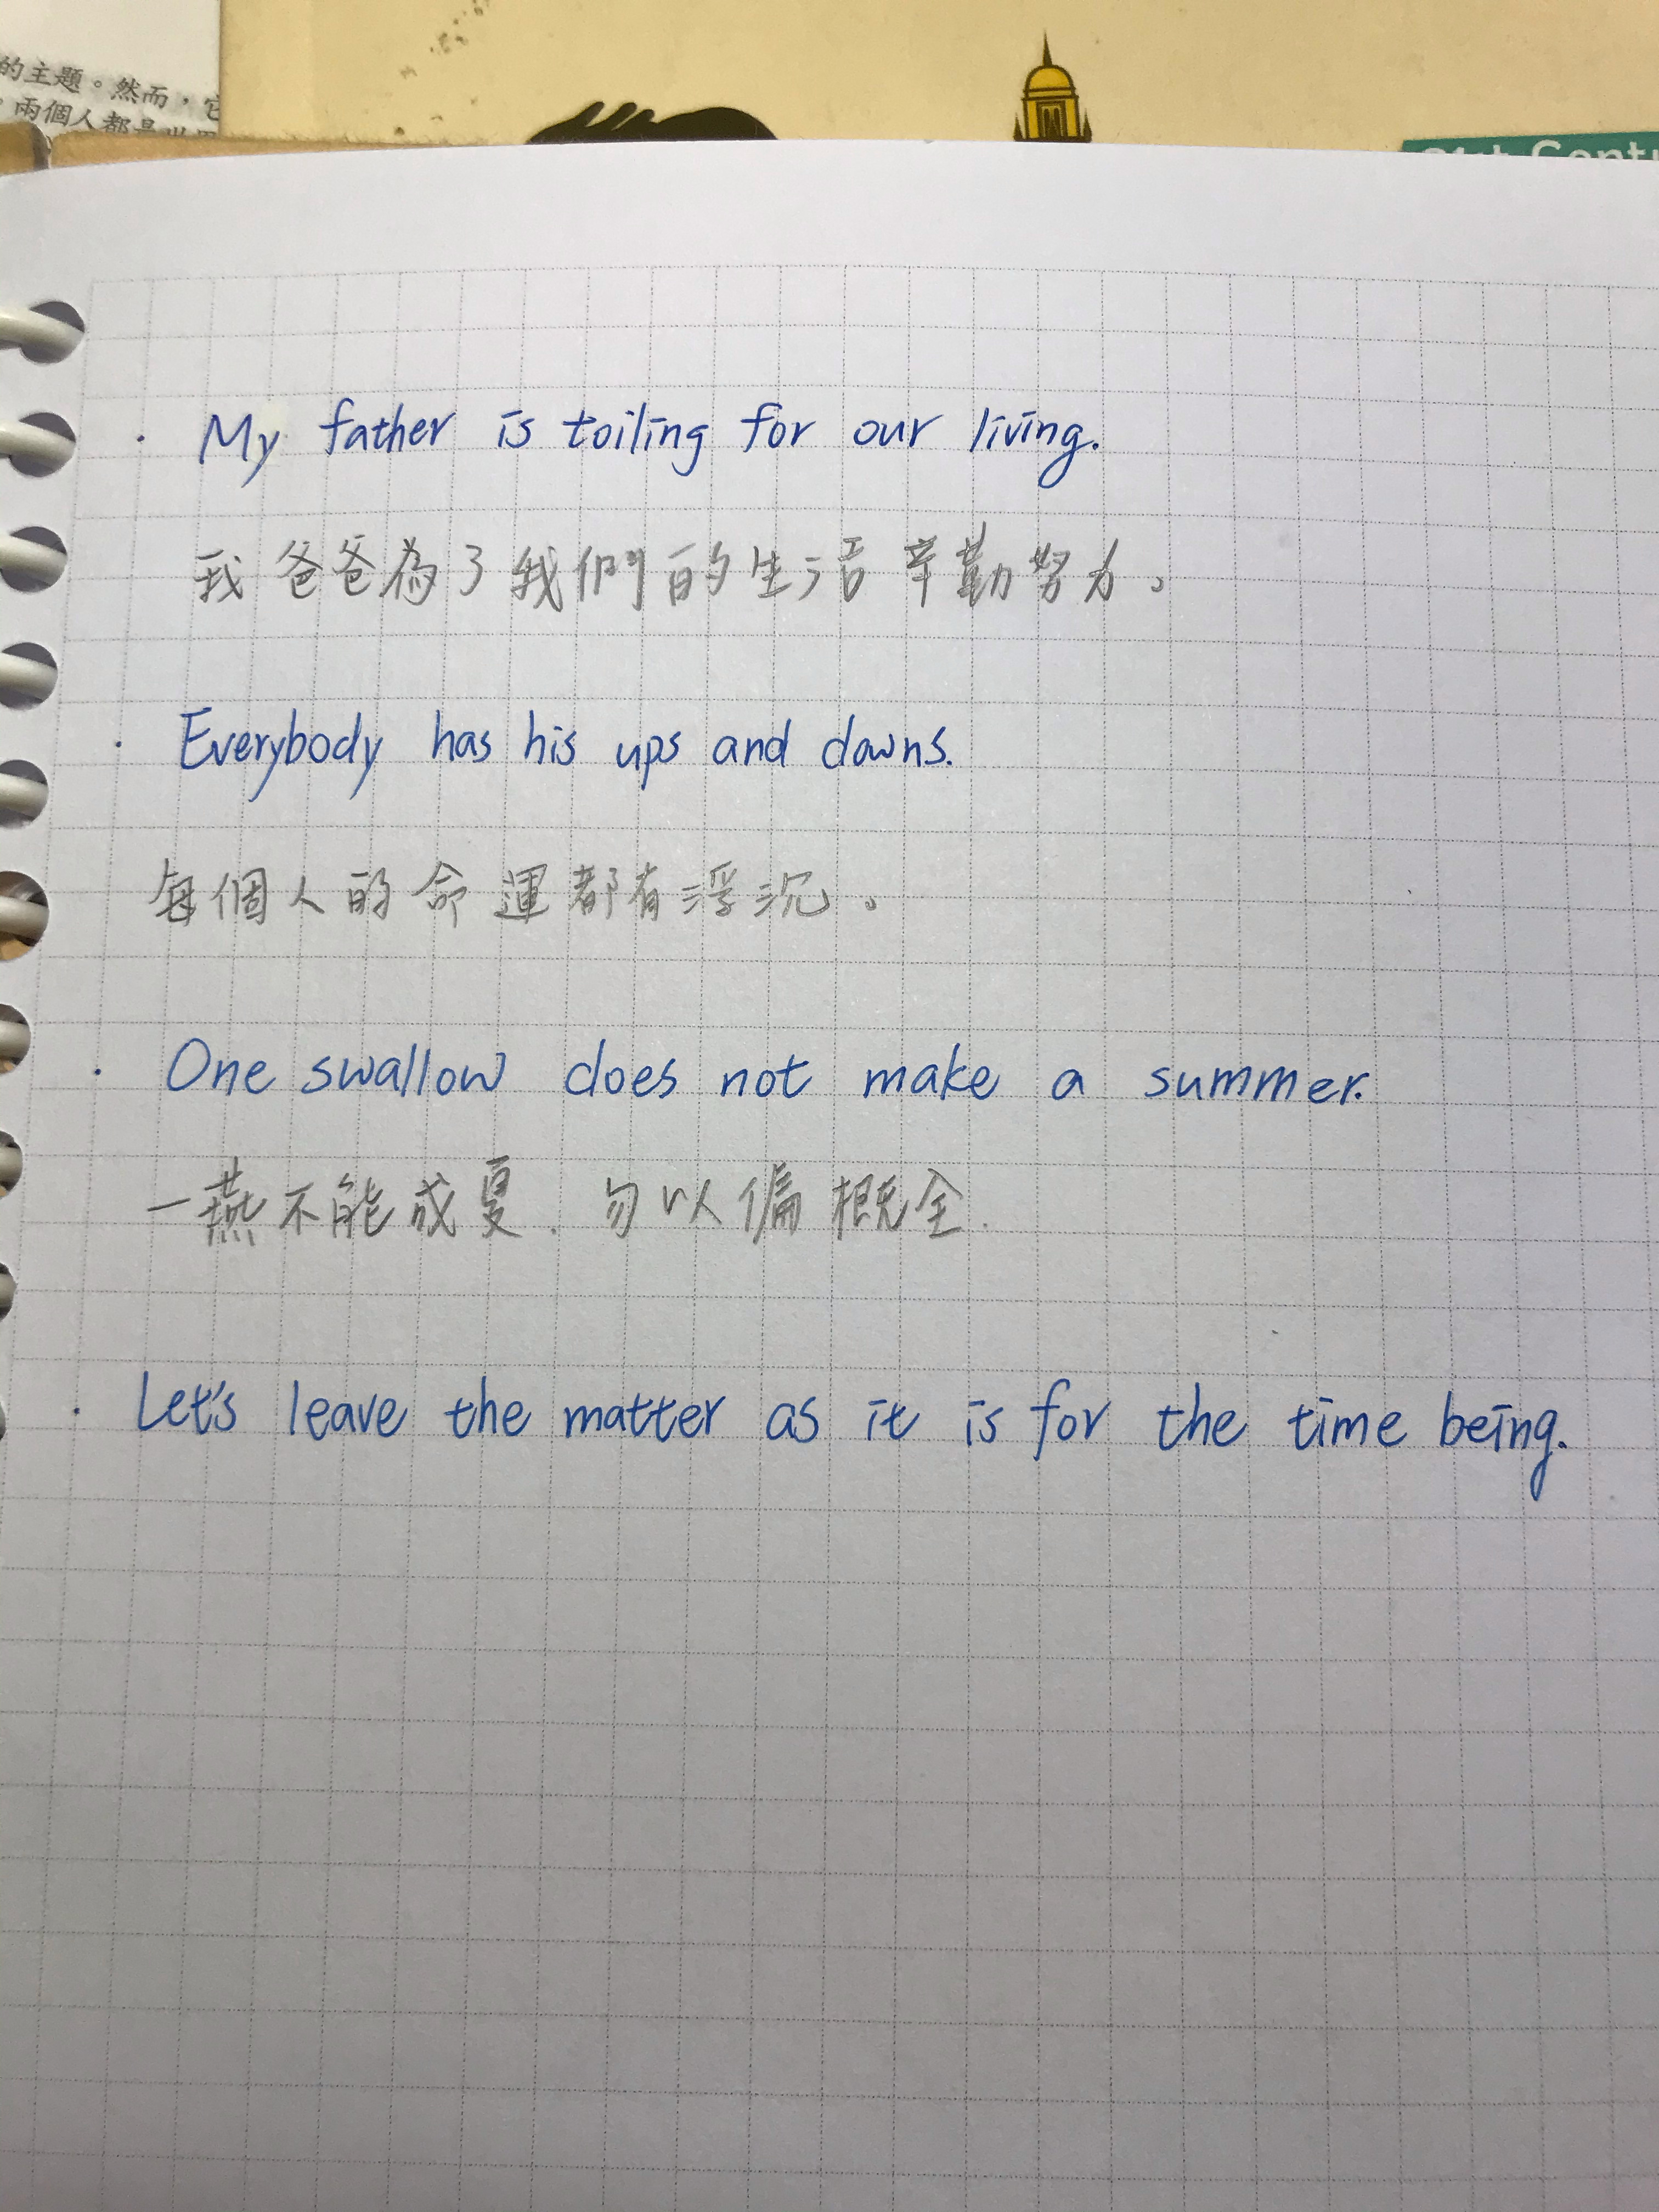 的主題。然而,它
。兩個人都是世界
21st Centu
· My father is toiling for our living.
我爸爸為了我們的生活辛勤努力。
· Everybody has his ups and downs.
每個人的命運都有浮沉。
· One swallow does not make a summer.
一燕不能成夏.勿以偏概全.
· Let's leave the matter as it is for the time being.